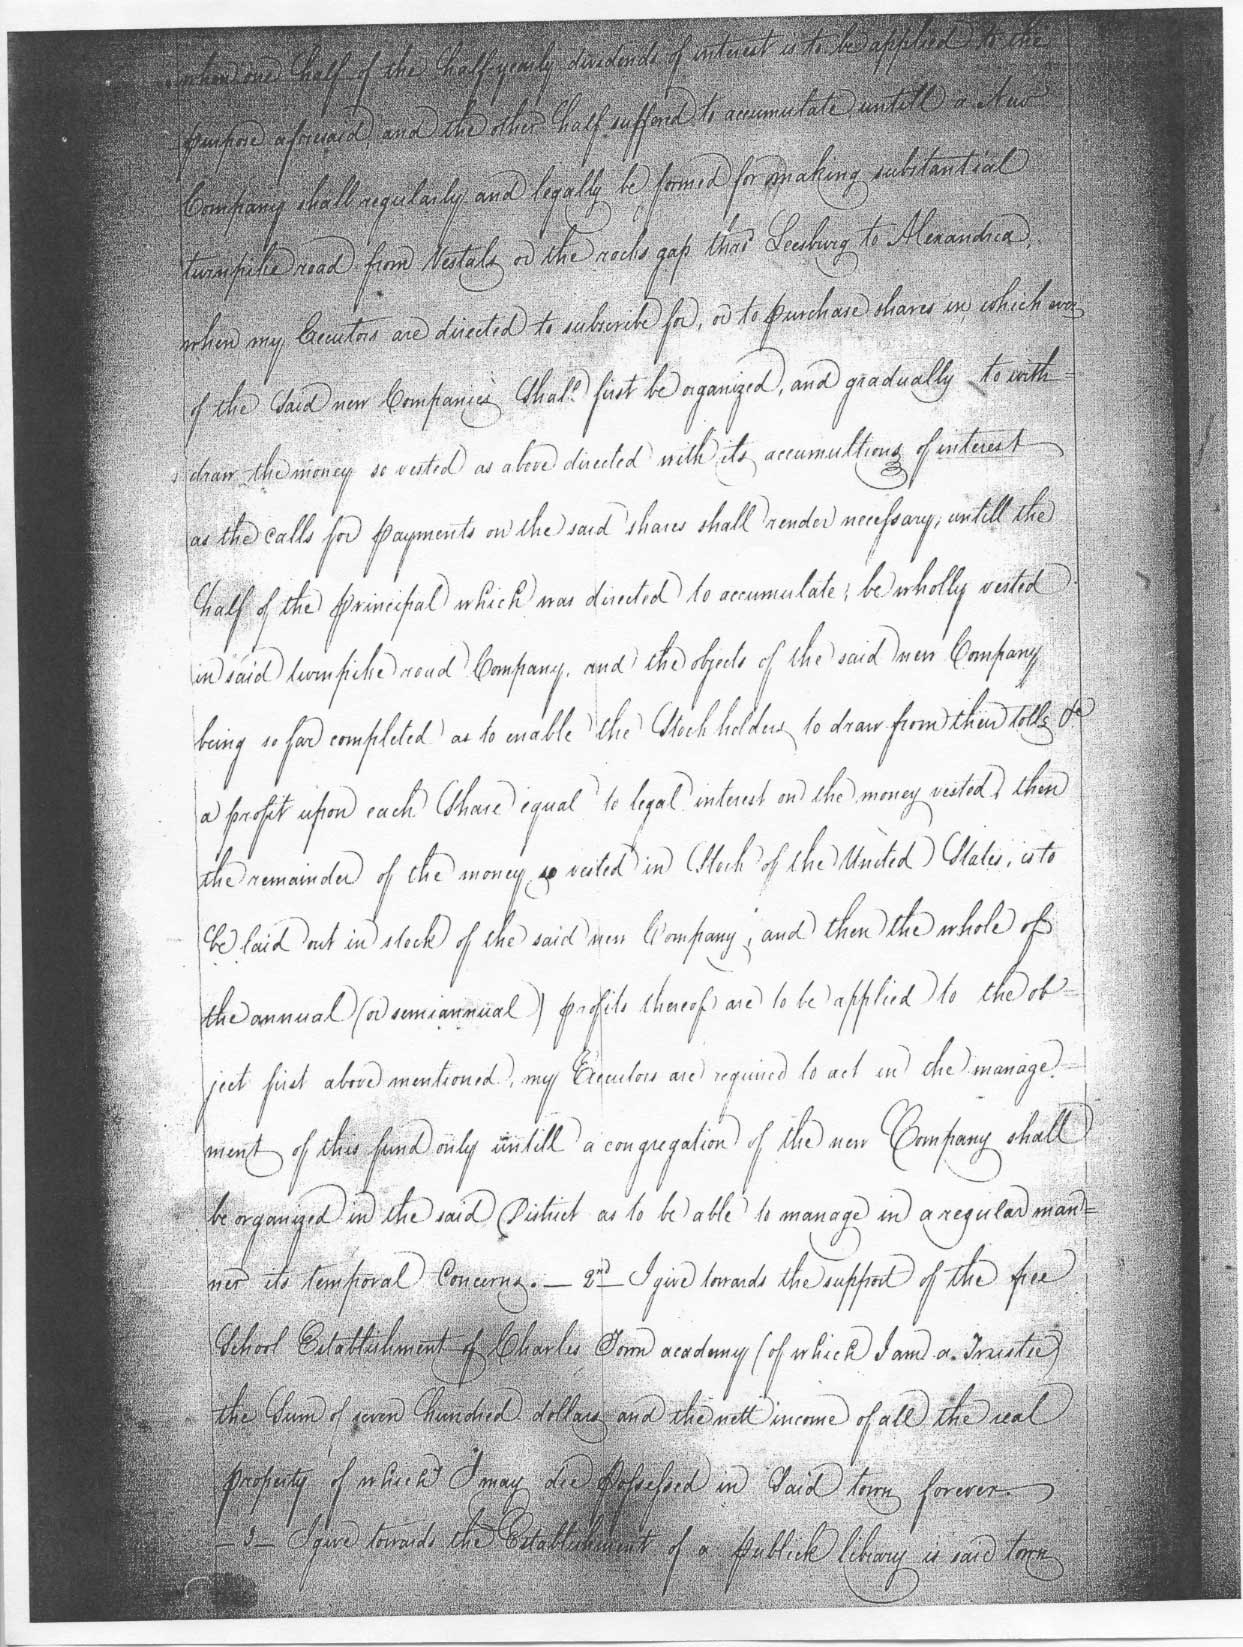 when one half of the half-yearly dividends of interest is to be applied to the
purpose aforesaid, and the other half suffered to accumulate untill a New
Company shall regularly and legally be formed for making substantial
turnpike road from Vestals or the rocks gap thro' Leesburg to Alexandria,
when my Executors are directed to subscribe for, or to purchase shares in, which ever
of the Said new Companies Shall first be organized, and gradually to with=
draw the money so vested as above directed with its accumultions of interest
as the calls for payments on the said shares shall render necessary; untill the
half of the principal which was directed to accumulate; be wholly vested
in said turnpike road Company, and the objects of the said new Company
being so far completed as to enable the Stock holders to draw from their tolls &c
a profit upon each Share equal to legal interest on the money vested, then
the remainder of the money so vested in Stock of the United States, is to
be laid out in stock of the said new Company; and then the whole of
the annual (or semiannual) profits thereof are to be applied to the ob=
ject first above mentioned, my Executors are required to act in the manage=
ment of this fund only untill a congregation of the new Company shall
be organized in the said District as to be able to manage in a regular man=
ner its temporal Concerns. — 2nd — I give towards the support of the free
School Establishment of Charles Town academy (of which I am a Trustee)
the Sum of seven hundred dollars and the nett income of all the real
property of which I may die possessed in Said town forever.
— 3 — I give towards the Establishment of a publick library is said town